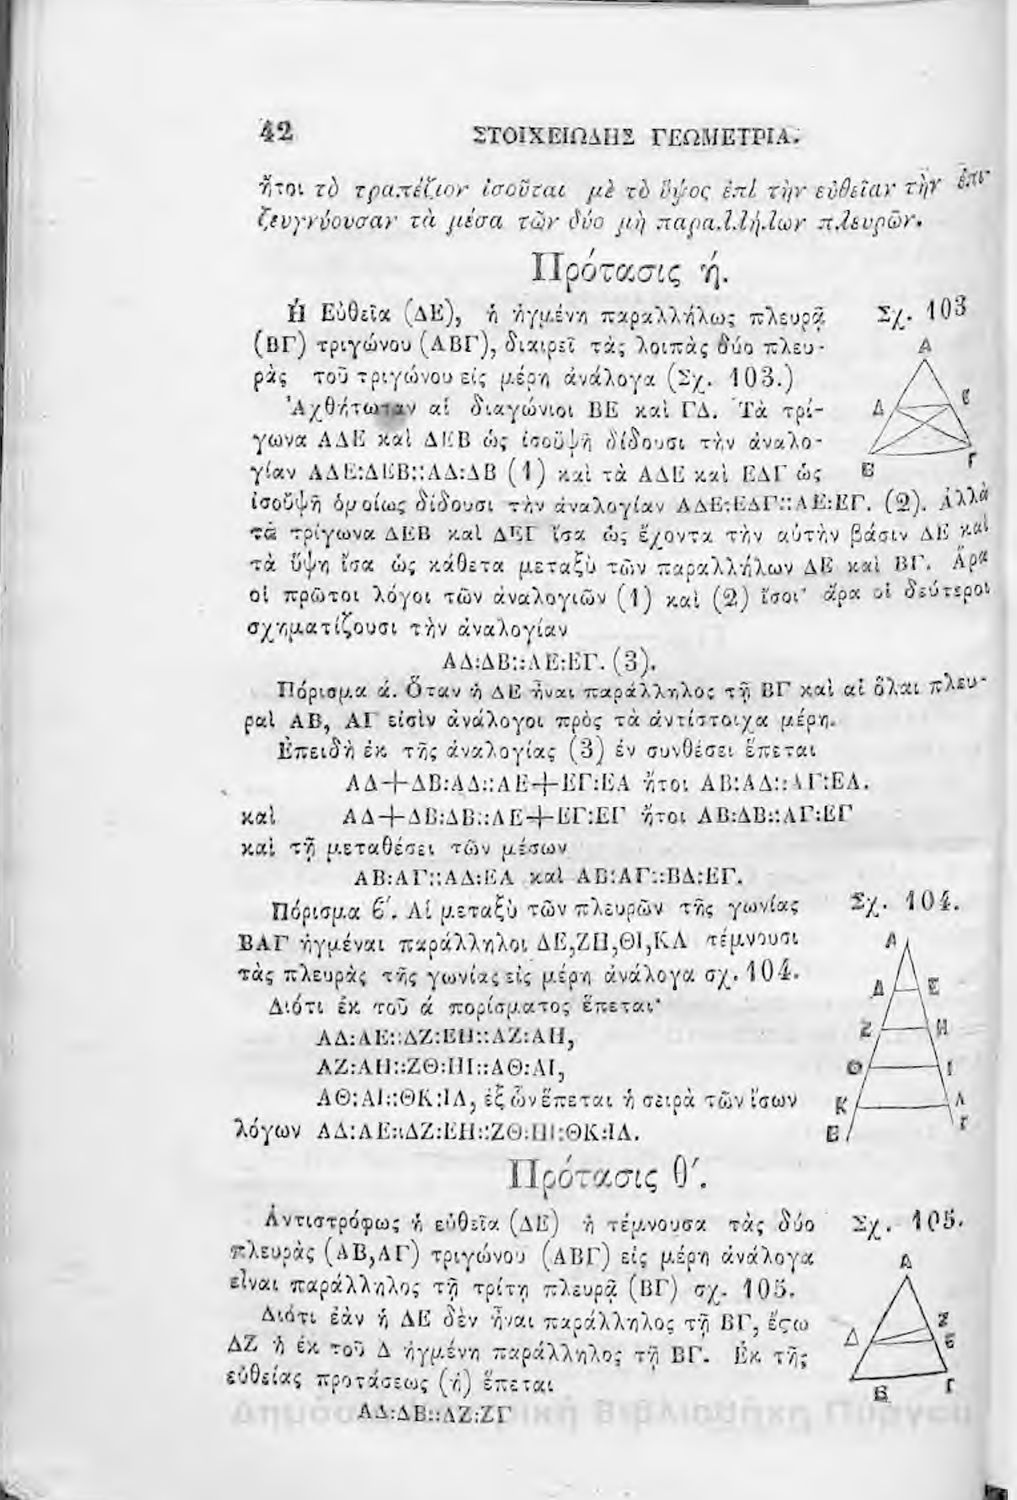 42 ΣΤΟΙΧΕΙΩΔΗΣ ΓΕΩΜΕΤΡΙΑ.
ἤτοι τὸ τραπέζιον ἰσοῦται μὲ τὸ ὕψος ἐπὶ τὴν εὐθεῖαν τὴν ἐπι-
ζευγνύουσαν τὰ μέσα τῶν δύο μὴ παραλλήλων πλευρῶν.
Πρότασις ή.
Ἡ Εὐθεῖα (ΔΕ), ἡ ἠγμένη παραλλήλως πλευρᾷ
(ΒΓ) τριγώνου (ΑΒΓ), διαιρεῖ τὰς λοιπὰς δύο πλευ-
ρὰς τοῦ τριγώνου εἰς μέρη ἀνάλογα (Σχ. 103.)
Σχ. 103
Α
Δ Ε
Β Γ
Ἀχθήτωσαν αἱ διαγώνιοι ΒΕ καὶ ΓΔ. Τὰ τρί-
γωνα ΑΔΕ καὶ ΔΕΒ ὡς ἰσοϋψῆ δίδουσι τὴν ἀναλο-
γίαν ΑΔΕ:ΔΕΒ::ΑΔ:ΔΒ (1) καὶ τὰ ΑΔΕ καὶ ΕΔΓ ὡς
ἰσοϋψῆ ὁμοίως δίδουσι τὴν ἀναλογίαν ΑΔΕ:ΕΔΓ::ΑΕ:ΕΓ. (2). Ἀλλὰ
τὰ τρίγωνα ΔΕΒ καὶ ΔΕΓ ἴσα ὡς ἔχοντα τὴν αὐτὴν βάσιν ΔΕ καὶ
τὰ ὕψη ἴσα ὡς κάθετα μεταξὺ τῶν παραλλήλων ΔΕ καὶ ΒΓ. Ἄρα
οἱ πρῶτοι λόγοι τῶν ἀναλογιῶν (1) καὶ (2) ἴσοι· ἄρα οἱ δεύτεροι
σχηματίζουσι τὴν ἀναλογίαν
ΑΔ:ΔΒ::ΑΕ:ΕΓ. (3).
Πόρισμα ά. Ὅταν ἡ ΔΕ ἦναι παράλληλος τῇ ΒΓ καὶ αἱ ὅλαι πλευ-
ραὶ ΑΒ, ΑΓ εἰσὶν ἀνάλογοι πρὸς τὰ ἀντίστοιχα μέρη.
Ἐπειδὴ ἐκ τῆς ἀναλογίας (3) ἐν συνθέσει ἕπεται
ΑΔ+ΔΒ:ΑΔ::ΑΕ+ΕΓ:ΕΑ ἤτοι ΑΒ:ΑΔ::ΑΓ:ΕΑ.
καὶ ΑΔ+ΔΒ:ΔΒ::ΑΕ+ΕΓ:ΕΓ ἤτοι ΑΒ:ΔΒ::ΑΓ:ΕΓ
καὶ τῇ μεταθέσει τῶν μέσων
ΑΒ:ΑΓ::ΑΔ:ΕΑ καὶ ΑΒ:ΑΓ::ΒΔ:ΕΓ.
Πόρισμα β΄. Αἱ μεταξὺ τῶν πλευρῶν τῆς γωνίας
ΒΑΓ ἠγμέναι παράλληλοι ΔΕ,ΖΗ,ΘΙ,ΚΛ τέμνουσι
τὰς πλευρὰς τῆς γωνίας εἰς μέρη ἀνάλογα σχ. 104.
Διότι ἐκ τοῦ ά πορίσματος ἕπεται·
ΑΔ:ΑΕ::ΔΖ:ΕΗ::ΑΖ:ΑΗ,
ΑΖ:ΑΗ::ΖΘ:ΗΙ::ΑΘ:ΑΙ,
ΑΘ:ΑΙ::ΘΚ:ΙΛ, ἐξ ὧν ἕπεται ἡ σειρὰ τῶν ἴσων
λόγων ΑΔ:ΑΕ::ΔΖ:ΕΗ::ΖΘ:ΗΙ:ΘΚ:ΙΛ.
Σχ. 104.
Α
Δ Ε
Ζ Η
Θ Ι
Κ Λ
Β Γ
Πρότασις θ΄.
Ἀντιστρόφως ἡ εὐθεῖα (ΔΕ) ἡ τέμνουσα τὰς δύο
πλευρὰς (ΑΒ,ΑΓ) τριγώνου (ΑΒΓ) εἰς μέρη ἀνάλογα
εἶναι παράλληλος τῇ τρίτῃ πλευρᾷ (ΒΓ) σχ. 105.
Διότι ἐὰν ἡ ΔΕ δὲν ἦναι παράλληλος τῇ ΒΓ, ἔςω
ΔΖ ἡ ἐκ τοῦ Δ ἠγμένη παράλληλος τῇ ΒΓ. Ἐκ τῆς
εὐθείας προτάσεως (ή) ἕπεται
ΑΔ:ΔΒ::ΑΖ:ΖΓ
Σχ. 105.
Α
Ζ
Δ Ε
Β Γ
Δημόσια Κεντρική Βιβλιοθήκη Πύργου